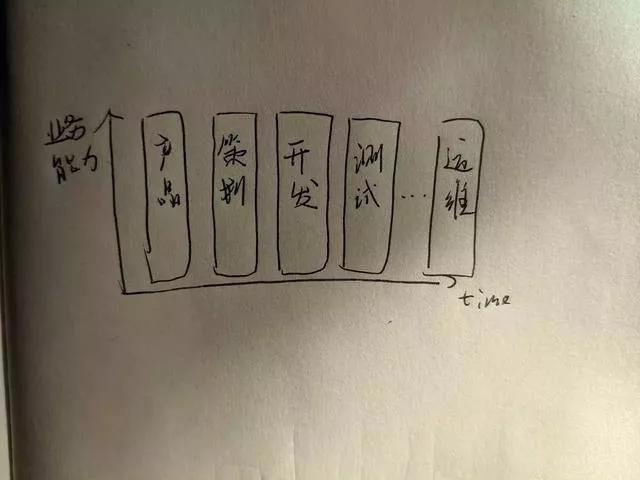 业务
能力
产品
策划
开发
测试
...
运维
time